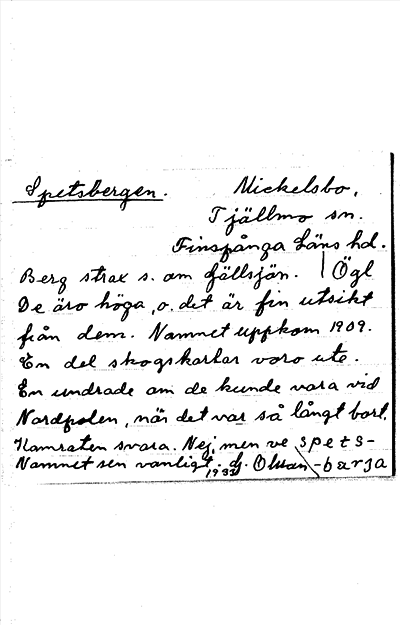 Spetsbergen. Mickelsbo,
Tjällmo sn.
Finspånga Läns hd.
Berg strax s. om Fjällsjön. | Ögl
De äro höga, o. det är fin utsikt
från dem. Namnet uppkom 1909.
En del skogskarlar voro ute.
En undrade om de kunde vara vid
Nordpolen, när det var så långt bort.
Kamraten svara. Nej, men ve spets-
Namnet sen vanligt. G. Olsson -barja